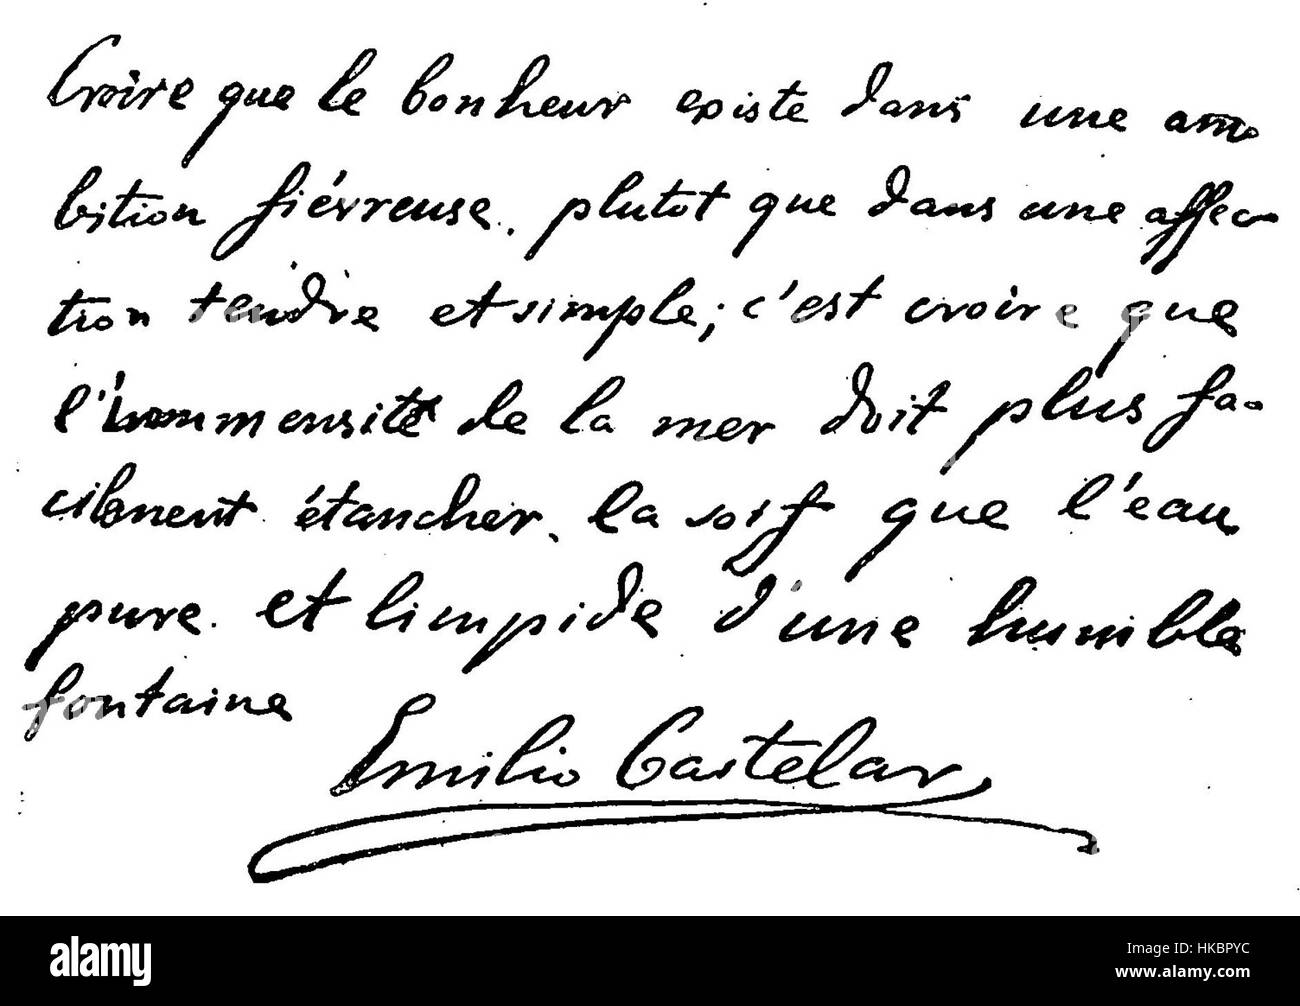 Croire que le bonheur existe dans une am-
bition fiévreuse, plutot que dans une affec-
tion tendre et simple; c'est croire que
l'immensité de la mer doit plus fa-
cilement étancher, la soif que l'eau
pure et limpide d'une humble
fontaine
Emilio Castelar
alamy
Image ID: HKBPYC
www.alamy.com